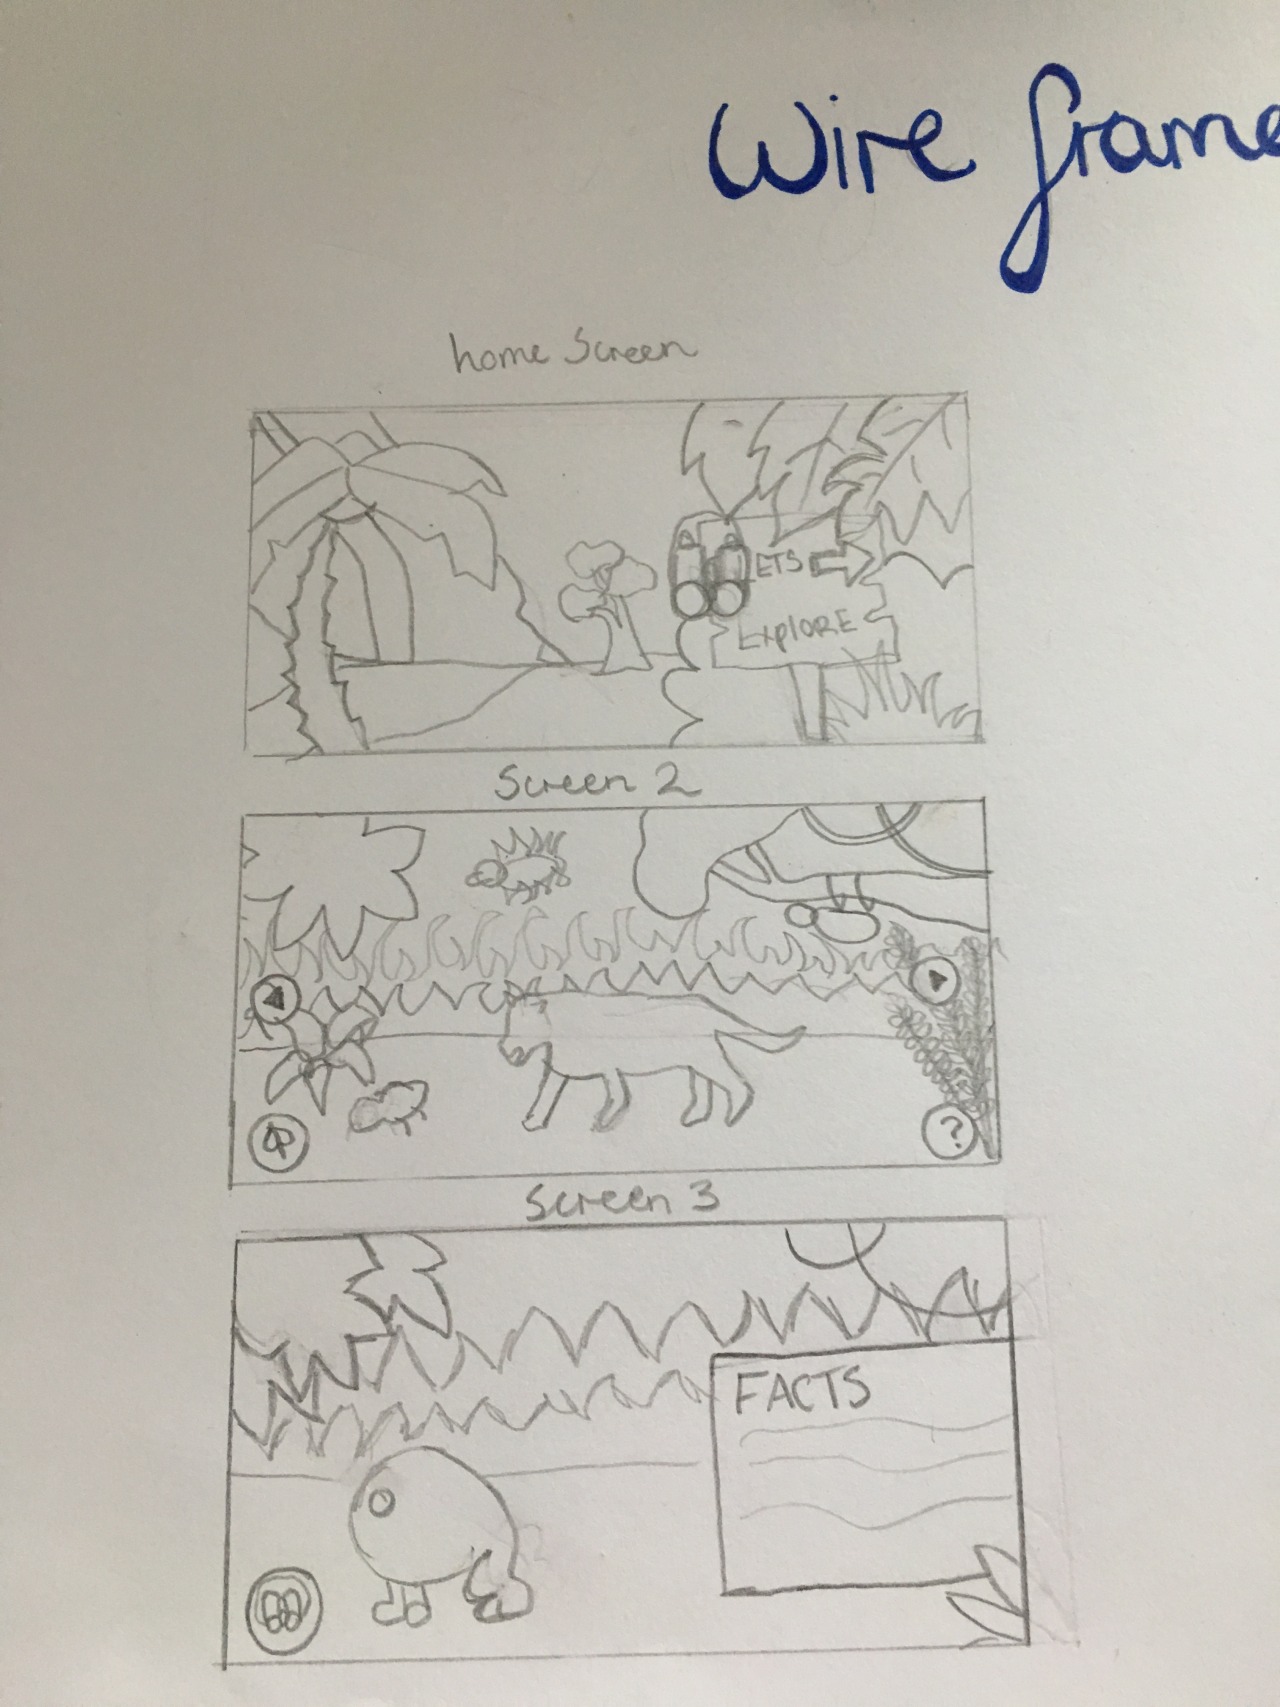 Wire frame
home Screen
LETS
ExplORE
Screen 2
?
Screen 3
FACTS